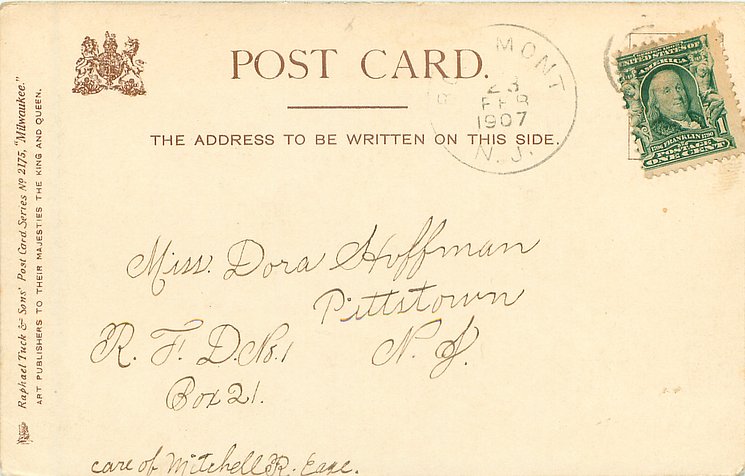 POST CARD.
THE ADDRESS TO BE WRITTEN ON THIS SIDE.
MONT
23
FEB
1907
N.J.
UNITED STATES OF
AMERICA
1 FRANKLIN 1
POSTAGE
ONE CENT
Raphael Tuck & Sons' Post Card Series No 2175, "Milwaukee."
ART PUBLISHERS TO THEIR MAJESTIES THE KING AND QUEEN.
Miss. Dora Hoffman
Pittstown
R. F. D. No. 1 N. J.
Box 21.
care of Mitchell R.